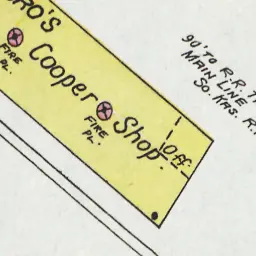 RO'S
Cooper Shop.
FIRE
PL.
FIRE
PL.
Off.
90' TO R.R. T
MAIN LINE
SO. KAS. R.